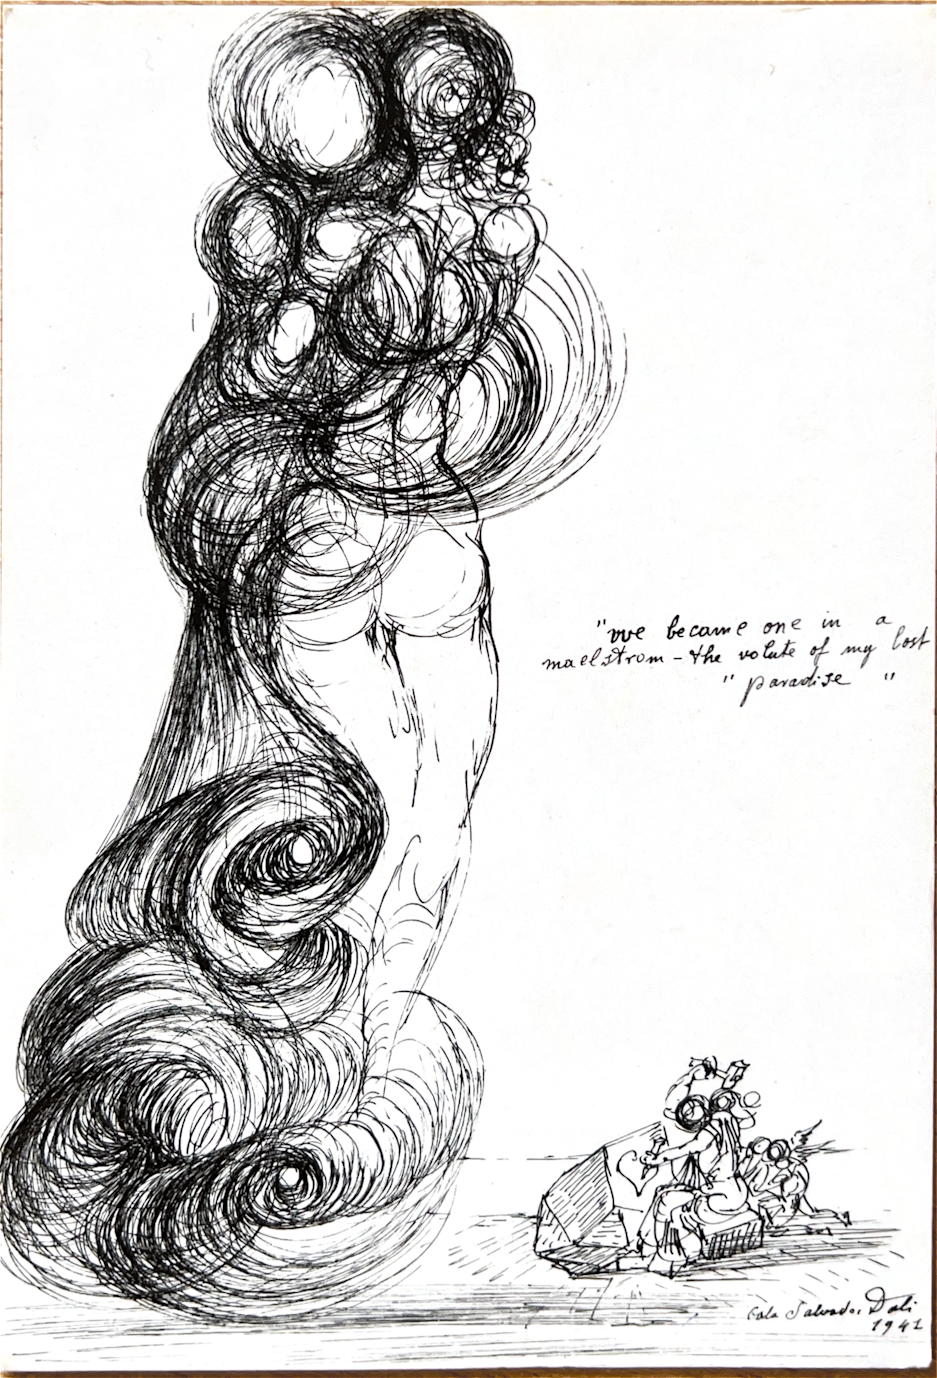 "we became one in a
maelstrom - the volute of my lost
" paradise "
Gala Salvador Dali
1941